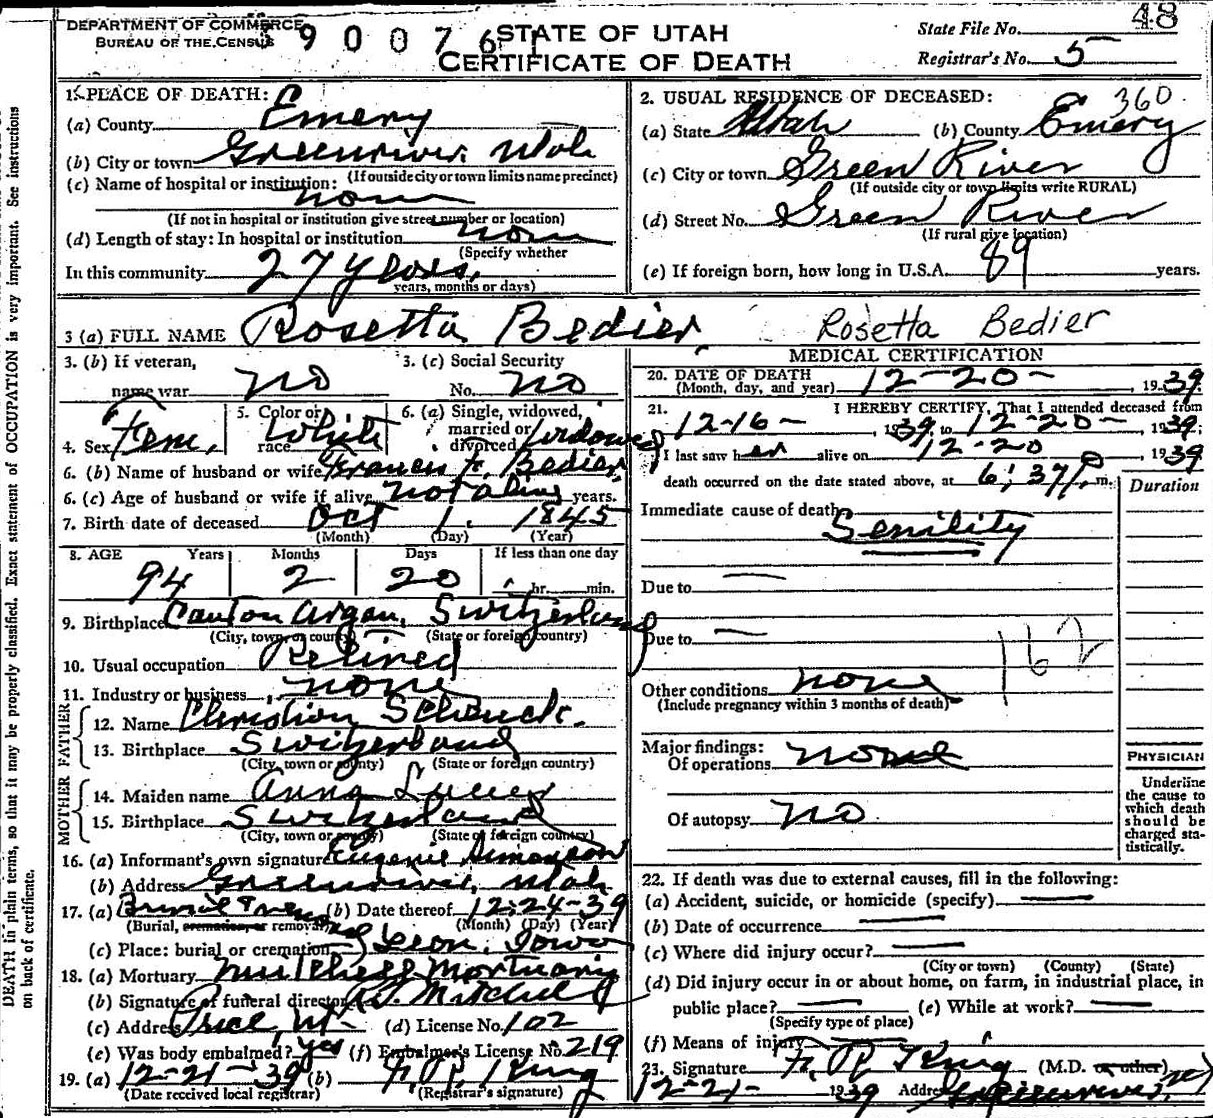 DEPARTMENT OF COMMERCE
BUREAU OF THE CENSUS
3 9 0 0 7 6 1
STATE OF UTAH
CERTIFICATE OF DEATH
48
State File No.
Registrar's No. 5
1. PLACE OF DEATH:
(a) County Emery
(b) City or town Greenriver Utah
(If outside city or town limits name precinct)
(c) Name of hospital or institution:
none
(If not in hospital or institution give street number or location)
(d) Length of stay: In hospital or institution none
(Specify whether
In this community 27 years,
years, months or days)
2. USUAL RESIDENCE OF DECEASED: 360
(a) State Utah (b) County Emery
(c) City or town Green River
(If outside city or town limits write RURAL)
(d) Street No. Green River
(If rural give location)
(e) If foreign born, how long in U.S.A. 89 years.
3 (a) FULL NAME Rosetta Bedier Rosetta Bedier
3. (b) If veteran,
name war no
3. (c) Social Security
No. no
4. Sex Fem,
5. Color or
race White
6. (a) Single, widowed,
married or
divorced widowed
6. (b) Name of husband or wife F. Bedier
6. (c) Age of husband or wife if alive not alive years.
7. Birth date of deceased Oct 1. 1845
(Month) (Day) (Year)
8. AGE Years Months Days If less than one day
94 2 20 hr. min.
9. Birthplace Canton Argau, Switzerland
(City, town, or county) (State or foreign country)
10. Usual occupation Retired
11. Industry or business none
FATHER
12. Name Christian Schauck.
13. Birthplace Switzerland
(City, town or county) (State or foreign country)
MOTHER
14. Maiden name Anna
15. Birthplace Switzerland
(City, town or county) (State or foreign country)
16. (a) Informant's own signature Eugenie
(b) Address Greenriver, Utah
17. (a) (b) Date thereof 12-24-39
(Burial, cremation, or removal) (Month) (Day) (Year)
(c) Place: burial or cremation Leon, Iowa
18. (a) Mortuary Mitchell Mortuary
(b) Signature of funeral director Mitchell
(c) Address Price, Ut- (d) License No. 102
(e) Was body embalmed? yes (f) Embalmer's License No. 219
19. (a) 12-21-39 (b) F. R. King
(Date received local registrar) (Registrar's signature)
MEDICAL CERTIFICATION
20. DATE OF DEATH
(Month, day, and year) 12-20- , 1939.
21. I HEREBY CERTIFY, That I attended deceased from
12-16- , 1939, to 12-20- , 1939;
I last saw her alive on 12-20 , 1939
death occurred on the date stated above, at 6:37 P. m.
Duration
Immediate cause of death
Senility
Due to —
Due to —
162
Other conditions none
(Include pregnancy within 3 months of death)
Major findings:
Of operations none
Of autopsy no
PHYSICIAN
Underline
the cause to
which death
should be
charged sta-
tistically.
22. If death was due to external causes, fill in the following:
(a) Accident, suicide, or homicide (specify) —
(b) Date of occurrence —
(c) Where did injury occur? —
(City or town) (County) (State)
(d) Did injury occur in or about home, on farm, in industrial place, in
public place? — (e) While at work? —
(Specify type of place)
(f) Means of injury —
23. Signature F. R. King (M.D. or other)
12-21- 1939 Address Greenriver,
DEATH in plain terms, so that it may be properly classified. Exact statement of OCCUPATION is very important. See instructions
on back of certificate.